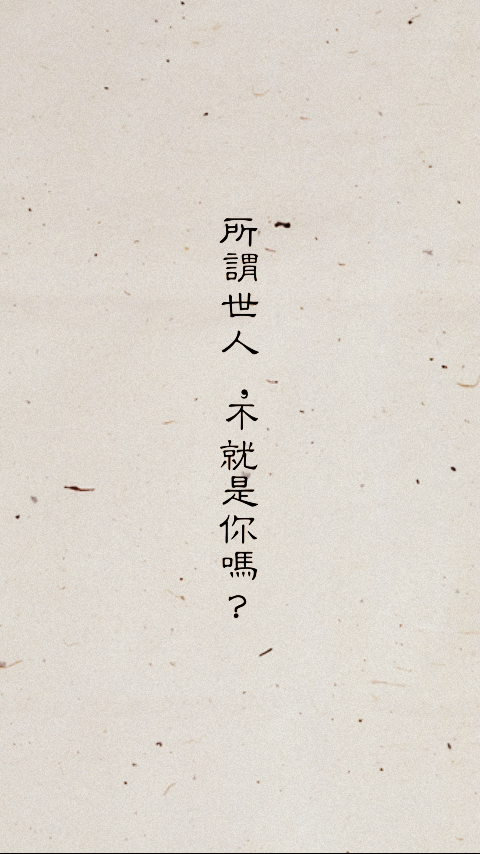 所謂世人，不就是你嗎？